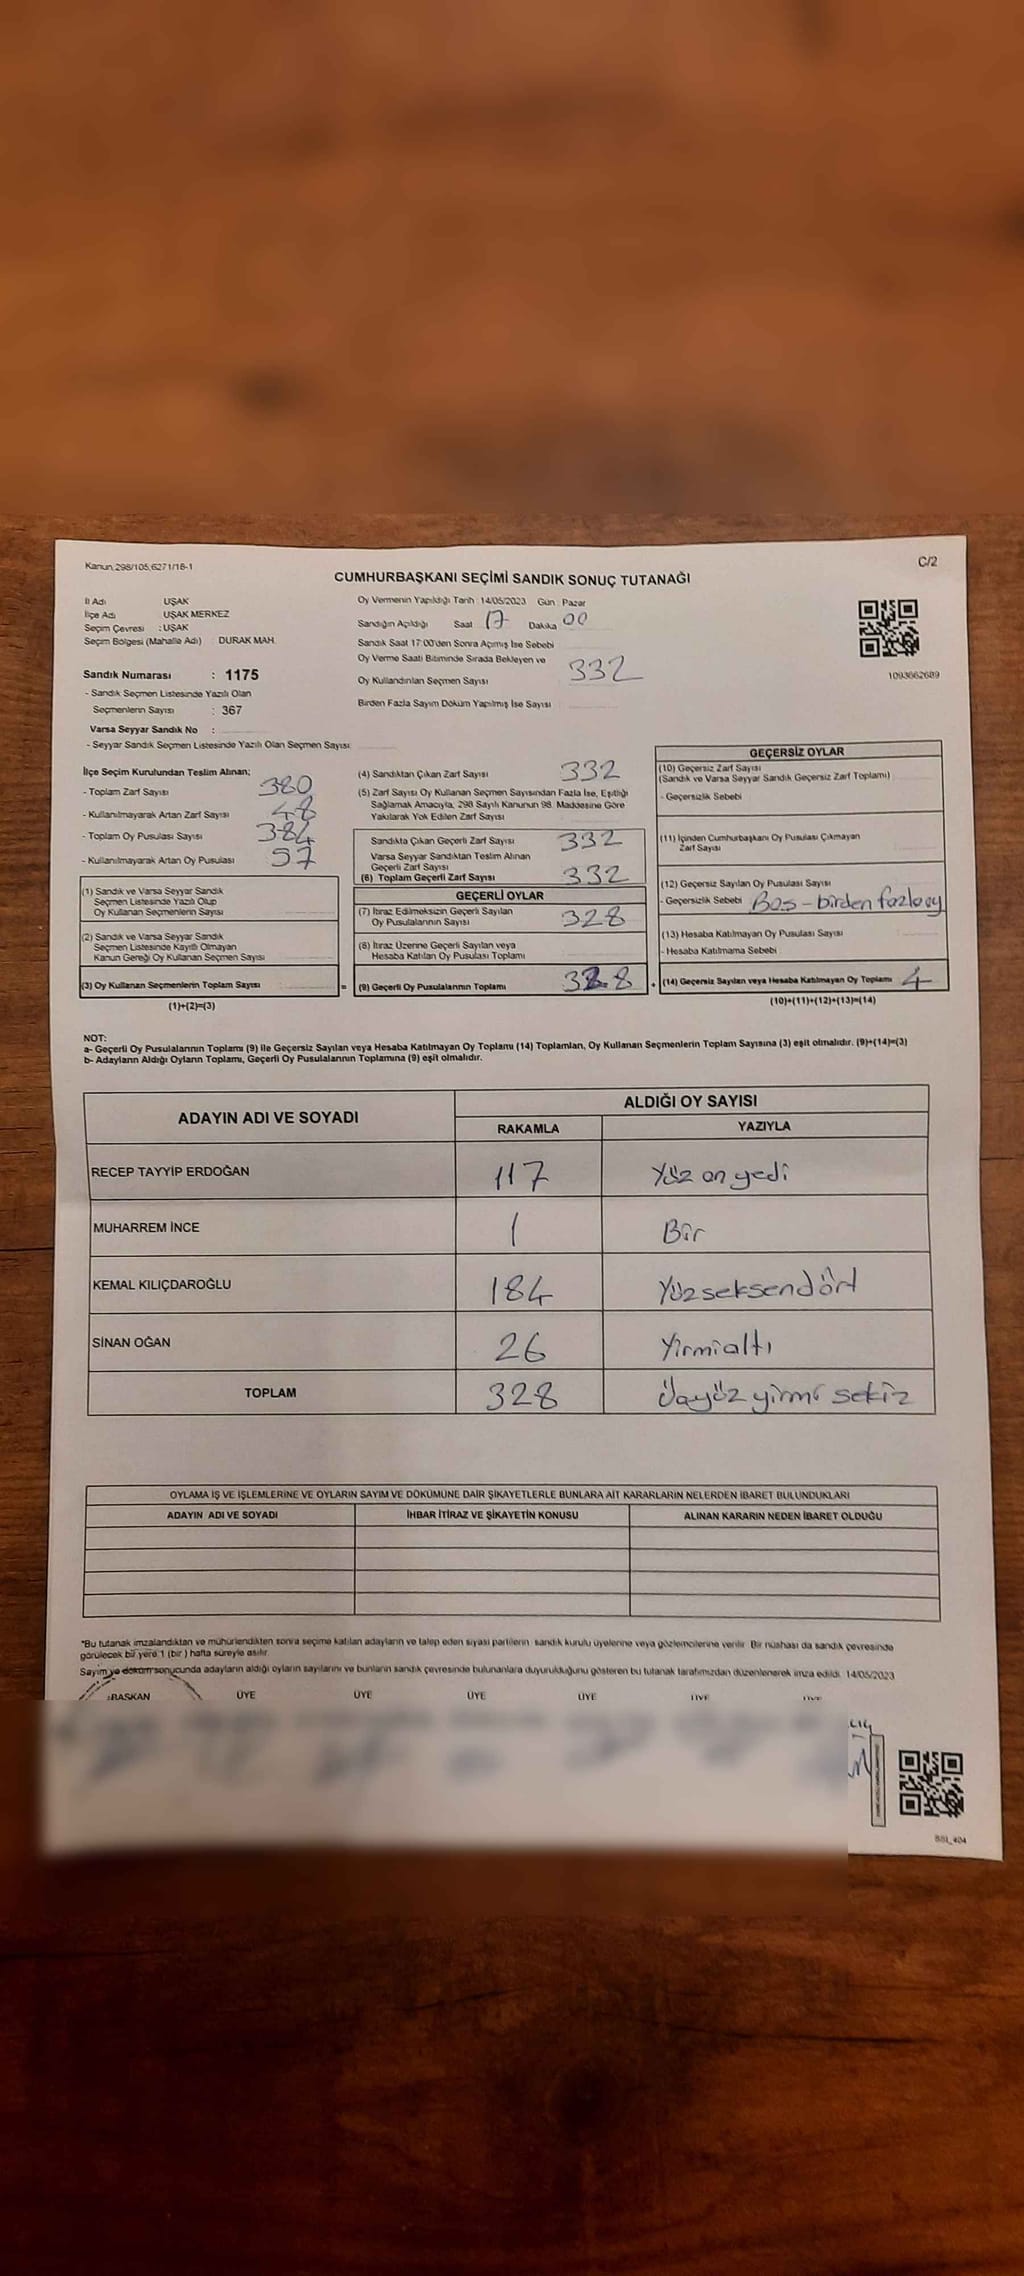 Kanun,298/105,6271/18-1
C/2
CUMHURBAŞKANI SEÇİMİ SANDIK SONUÇ TUTANAĞI
İl Adı UŞAK
İlçe Adı UŞAK MERKEZ
Seçim Çevresi : UŞAK
Seçim Bölgesi (Mahalle Adı) : DURAK MAH.
Sandık Numarası : 1175
- Sandık Seçmen Listesinde Yazılı Olan
Seçmenlerin Sayısı : 367
Varsa Seyyar Sandık No :
- Seyyar Sandık Seçmen Listesinde Yazılı Olan Seçmen Sayısı:
Oy Vermenin Yapıldığı Tarih :14/05/2023 Gün : Pazar
Sandığın Açıldığı Saat 17 Dakika 00
Sandık Saat 17:00'den Sonra Açımış İse Sebebi
Oy Verme Saati Bitiminde Sırada Bekleyen ve
Oy Kullandırılan Seçmen Sayısı 332
Birden Fazla Sayım Döküm Yapılmış İse Sayısı
1093662689
İlçe Seçim Kurulundan Teslim Alınan;
- Toplam Zarf Sayısı 380
- Kullanılmayarak Artan Zarf Sayısı 48
- Toplam Oy Pusulası Sayısı 384
- Kullanılmayarak Artan Oy Pusulası
(1) Sandık ve Varsa Seyyar Sandık
Seçmen Listesinde Yazılı Olup
Oy Kullanan Seçmenlerin Sayısı
(2) Sandık ve Varsa Seyyar Sandık
Seçmen Listesinde Kayıtlı Olmayan
Kanun Gereği Oy Kullanan Seçmen Sayısı
(3) Oy Kullanan Seçmenlerin Toplam Sayısı
(1)+(2)=(3)
=
(4) Sandıktan Çıkan Zarf Sayısı 332
(5) Zarf Sayısı Oy Kullanan Seçmen Sayısından Fazla İse, Eşitliği
Sağlamak Amacıyla, 298 Sayılı Kanunun 98. Maddesine Göre
Yakılarak Yok Edilen Zarf Sayısı
Sandıkta Çıkan Geçerli Zarf Sayısı 332
Varsa Seyyar Sandıktan Teslim Alınan
Geçerli Zarf Sayısı
(6) Toplam Geçerli Zarf Sayısı 332
GEÇERLİ OYLAR
(7) İtiraz Edilmeksizin Geçerli Sayılan
Oy Pusulalarının Sayısı 328
(8) İtiraz Üzerine Geçerli Sayılan veya
Hesaba Katılan Oy Pusulası Toplamı
(9) Geçerli Oy Pusulalarının Toplamı 328
+
GEÇERSİZ OYLAR
(10) Geçersiz Zarf Sayısı
(Sandık ve Varsa Seyyar Sandık Geçersiz Zarf Toplamı)
- Geçersizlik Sebebi
(11) İçinden Cumhurbaşkanı Oy Pusulası Çıkmayan
Zarf Sayısı
(12) Geçersiz Sayılan Oy Pusulası Sayısı
- Geçersizlik Sebebi Boş - birden fazla oy
(13) Hesaba Katılmayan Oy Pusulası Sayısı
- Hesaba Katılmama Sebebi
(14) Geçersiz Sayılan veya Hesaba Katılmayan Oy Toplamı 4
(10)+(11)+(12)+(13)=(14)
NOT:
a- Geçerli Oy Pusulalarının Toplamı (9) ile Geçersiz Sayılan veya Hesaba Katılmayan Oy Toplamı (14) Toplamları, Oy Kullanan Seçmenlerin Toplam Sayısına (3) eşit olmalıdır. (9)+(14)=(3)
b- Adayların Aldığı Oyların Toplamı, Geçerli Oy Pusulalarının Toplamına (9) eşit olmalıdır.
ADAYIN ADI VE SOYADI ALDIĞI OY SAYISI
RAKAMLA YAZIYLA
RECEP TAYYİP ERDOĞAN 117 Yüz on yedi
MUHARREM İNCE 1 Bir
KEMAL KILIÇDAROĞLU 184 Yüzseksendört
SİNAN OĞAN 26 Yirmialtı
TOPLAM 328 Üçyüz yirmi sekiz
OYLAMA İŞ VE İŞLEMLERİNE VE OYLARIN SAYIM VE DÖKÜMÜNE DAİR ŞİKAYETLERLE BUNLARA AİT KARARLARIN NELERDEN İBARET BULUNDUKLARI
ADAYIN ADI VE SOYADI İHBAR İTİRAZ VE ŞİKAYETİN KONUSU ALINAN KARARIN NEDEN İBARET OLDUĞU
*Bu tutanak imzalandıktan ve mühürlendikten sonra seçime katılan adayların ve talep eden siyasi partilerin sandık kurulu üyelerine veya gözlemcilerine verilir. Bir nüshası da sandık çevresinde
görülecek bir yere 1 (bir) hafta süreyle asılır.
Sayım ve döküm sonucunda adayların aldığı oyların sayılarını ve bunların sandık çevresinde bulunanlara duyurulduğunu gösteren bu tutanak tarafımızdan düzenlenerek imza edildi. 14/05/2023
BAŞKAN ÜYE ÜYE ÜYE ÜYE ÜYE ÜYE
BSI_404